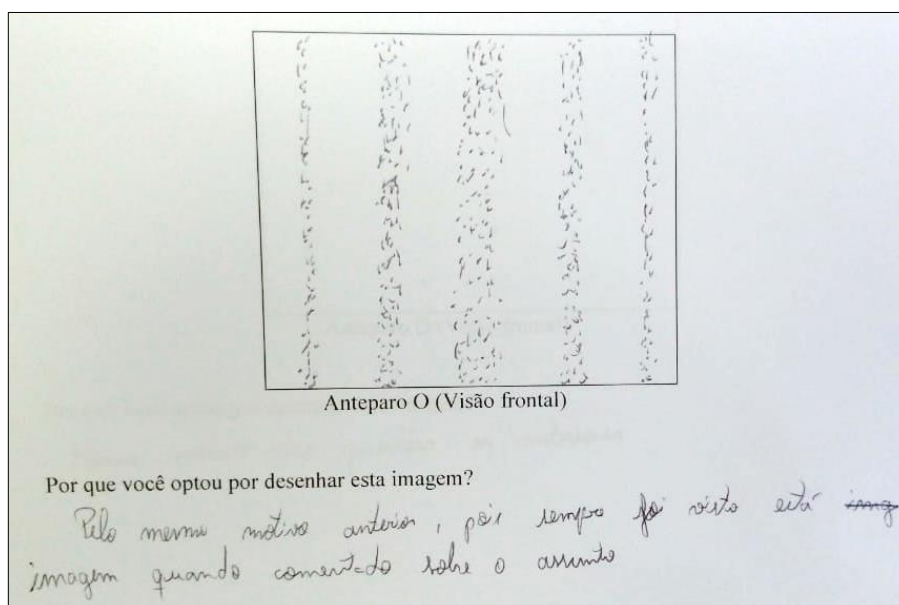 Anteparo O (Visão frontal)
Por que você optou por desenhar esta imagem?
Pelo mesmo motivo anterior, pois sempre foi visto está img
imagem quando comentado sobre o assunto